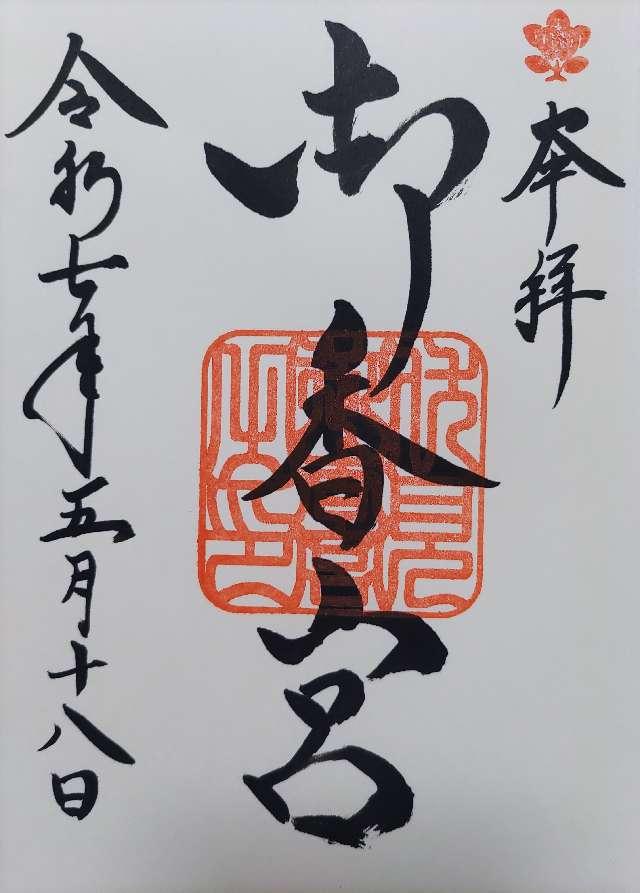 奉拝
御香宮
令和七年五月十八日